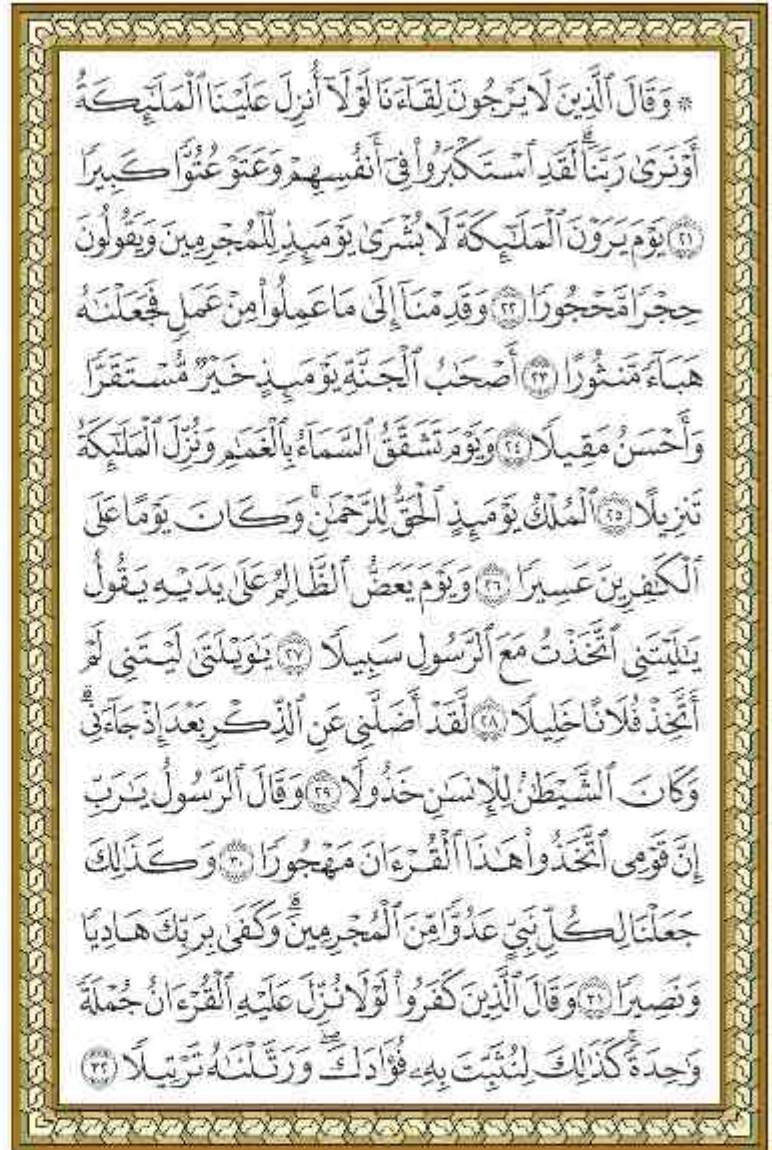 ۞ وَقَالَ ٱلَّذِينَ لَا يَرْجُونَ لِقَآءَنَا لَوْلَآ أُنزِلَ عَلَيْنَا ٱلْمَلَٰٓئِكَةُ
أَوْ نَرَىٰ رَبَّنَا ۗ لَقَدِ ٱسْتَكْبَرُوا۟ فِىٓ أَنفُسِهِمْ وَعَتَوْ عُتُوًّا كَبِيرًا
٢١ يَوْمَ يَرَوْنَ ٱلْمَلَٰٓئِكَةَ لَا بُشْرَىٰ يَوْمَئِذٍ لِّلْمُجْرِمِينَ وَيَقُولُونَ
حِجْرًا مَّحْجُورًا ٢٢ وَقَدِمْنَآ إِلَىٰ مَا عَمِلُوا۟ مِنْ عَمَلٍ فَجَعَلْنَٰهُ
هَبَآءً مَّنثُورًا ٢٣ أَصْحَٰبُ ٱلْجَنَّةِ يَوْمَئِذٍ خَيْرٌ مُّسْتَقَرًّا
وَأَحْسَنُ مَقِيلًا ٢٤ وَيَوْمَ تَشَقَّقُ ٱلسَّمَآءُ بِٱلْغَمَٰمِ وَنُزِّلَ ٱلْمَلَٰٓئِكَةُ
تَنزِيلًا ٢٥ ٱلْمُلْكُ يَوْمَئِذٍ ٱلْحَقُّ لِلرَّحْمَٰنِ ۚ وَكَانَ يَوْمًا عَلَى
ٱلْكَٰفِرِينَ عَسِيرًا ٢٦ وَيَوْمَ يَعَضُّ ٱلظَّالِمُ عَلَىٰ يَدَيْهِ يَقُولُ
يَٰلَيْتَنِى ٱتَّخَذْتُ مَعَ ٱلرَّسُولِ سَبِيلًا ٢٧ يَٰوَيْلَتَىٰ لَيْتَنِى لَمْ
أَتَّخِذْ فُلَانًا خَلِيلًا ٢٨ لَّقَدْ أَضَلَّنِى عَنِ ٱلذِّكْرِ بَعْدَ إِذْ جَآءَنِى ۗ
وَكَانَ ٱلشَّيْطَٰنُ لِلْإِنسَٰنِ خَذُولًا ٢٩ وَقَالَ ٱلرَّسُولُ يَٰرَبِّ
إِنَّ قَوْمِى ٱتَّخَذُوا۟ هَٰذَا ٱلْقُرْءَانَ مَهْجُورًا ٣٠ وَكَذَٰلِكَ
جَعَلْنَا لِكُلِّ نَبِىٍّ عَدُوًّا مِّنَ ٱلْمُجْرِمِينَ ۗ وَكَفَىٰ بِرَبِّكَ هَادِيًا
وَنَصِيرًا ٣١ وَقَالَ ٱلَّذِينَ كَفَرُوا۟ لَوْلَا نُزِّلَ عَلَيْهِ ٱلْقُرْءَانُ جُمْلَةً
وَٰحِدَةً ۚ كَذَٰلِكَ لِنُثَبِّتَ بِهِۦ فُؤَادَكَ ۖ وَرَتَّلْنَٰهُ تَرْتِيلًا ٣٢